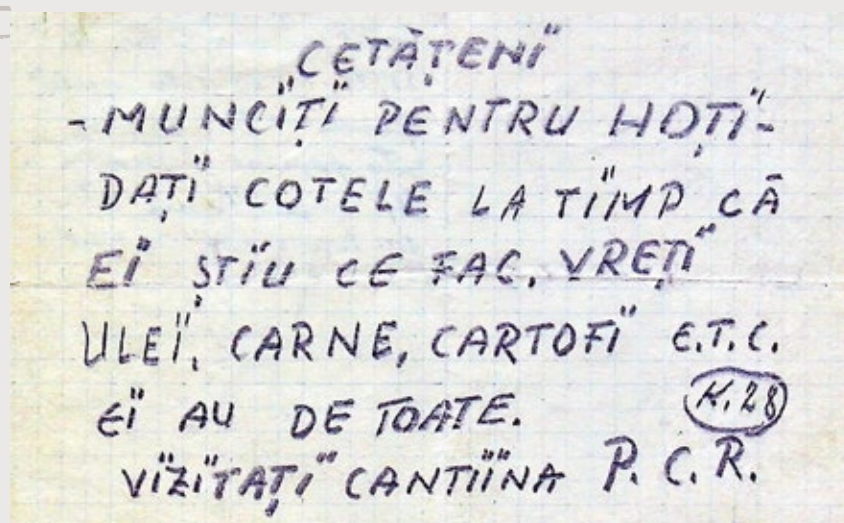 CETĂȚENI
- MUNCIȚI PENTRU HOȚI -
DAȚI COTELE LA TIMP CĂ
EI ȘTIU CE FAC. VREȚI
ULEI, CARNE, CARTOFI E.T.C.
EI AU DE TOATE. K.28
VIZITAȚI CANTIINA P.C.R.